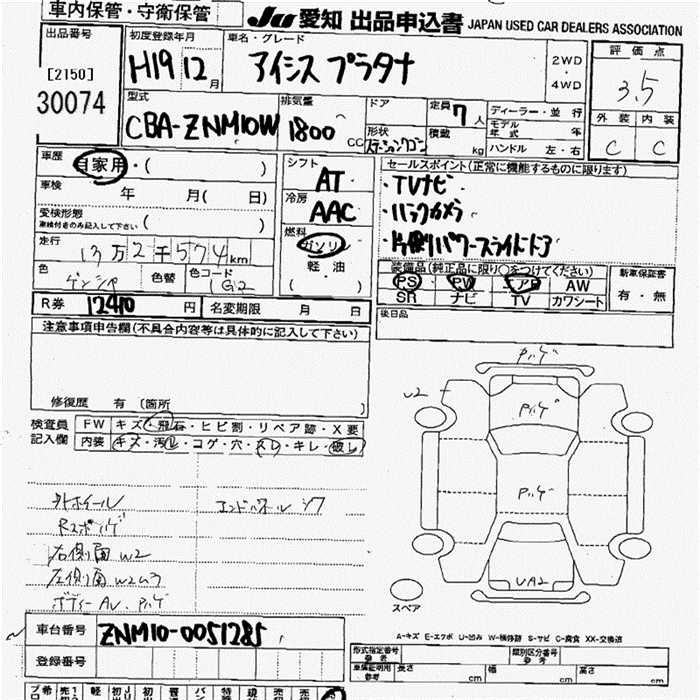 車内保管・守衛保管
JU 愛知 出品申込書 JAPAN USED CAR DEALERS ASSOCIATION
出品番号
[2150]
30074
初度登録年月
H19年12月
車名・グレード
アイシス プラタナ
2WD
・
4WD
評価点
3.5
外装 内装
C C
型式
CBA-ZNM10W
排気量
1800 CC
ドア
定員 7人
形状
ステーションワゴン
積載 kg
ディーラー・並行
モデル年式 年
ハンドル 左・右
車歴
自家用・( )
車検 年 月( 日)
受検形態
車検付きのみ記入して下さい ( )
走行
13万2千574km
色 色替 色コード
G12
シフト
AT
冷房
AAC
燃料
ガソリン
軽油
( )
セールスポイント(正常に機能するものに限ります)
・TVナビ
・バックカメラ
・片側パワースライドドア
装備品(純正品に限り○をつけてください)
PS PW エアB AW
SR ナビ TV カワシート
新車保証書
有・無
後日品
R券 12410円 名変期限 月 日
注意事項申告欄(不具合内容等は具体的に記入して下さい)
修復歴 有 〔箇所 〕
検査員
記入欄
FW キズ・飛石・ヒビ割・リペア跡・X要
内装 キズ・汚れ・コゲ・穴・スレ・キレ・破レ
外ホイール
エンドパネル シワ
右側面 W2
左側面 W2ムラ
ボディーAU.
U2
UA2
スペア
A-キズ E-エクボ U-凹み W-補修跡 S-サビ C-腐食 XX-交換済
車台番号 ZNM10-0051285
登録番号
形式指定番号
参考
類別区分番号
参考
車庫証明用
参考
長さ cm 幅 cm 高さ cm